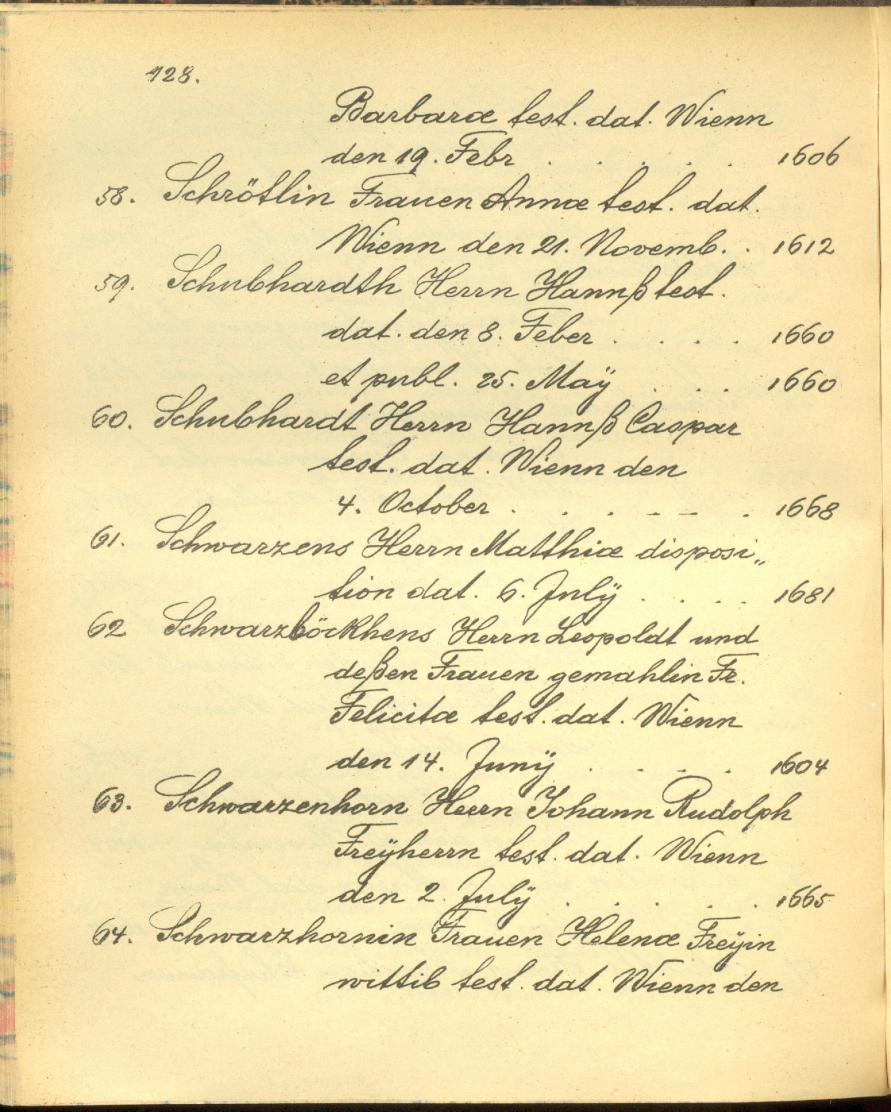 128.
Barbaræ test. dat. Wienn
den 19. Febr . . . . . 1606
58. Schrötlin Frauen Annæ test. dat.
Wienn den 21. Novemb. . 1612
59. Schubhardth Herrn Hannß test.
dat. den 8. Feber . . . . 1660
et publ. 25. Maÿ . . . 1660
60. Schubhardt Herrn Hannß Caspar
test. dat. Wienn den
4. October . . . . . . 1668
61. Schwarzens Herrn Matthiæ disposi„
tion dat. 6. Julÿ . . . . 1681
62 Schwarzböckhens Herrn Leopoldt und
deßen Frauen gemahlin Fr.
Felicitæ test. dat. Wienn
den 14. Junÿ . . . . 1604
63. Schwarzenhorn Herrn Johann Rudolph
Freÿherrn test. dat. Wienn
den 2. Julÿ . . . . . 1665
64. Schwarzhornin Frauen Helenæ Freÿin
wittib test. dat. Wienn den